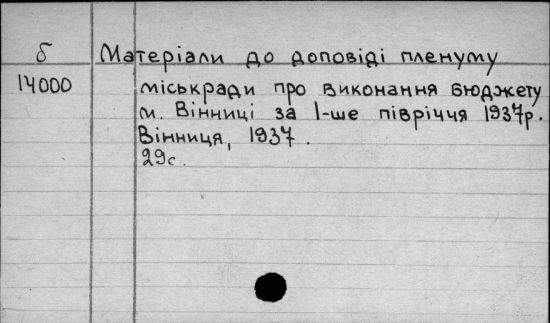 б Матеріали до доповіді пленуму
14000 міськради про виконання бюджету
м. Вінниці за І-ше півріччя 1937р.
Вінниця, 1937.
29с.